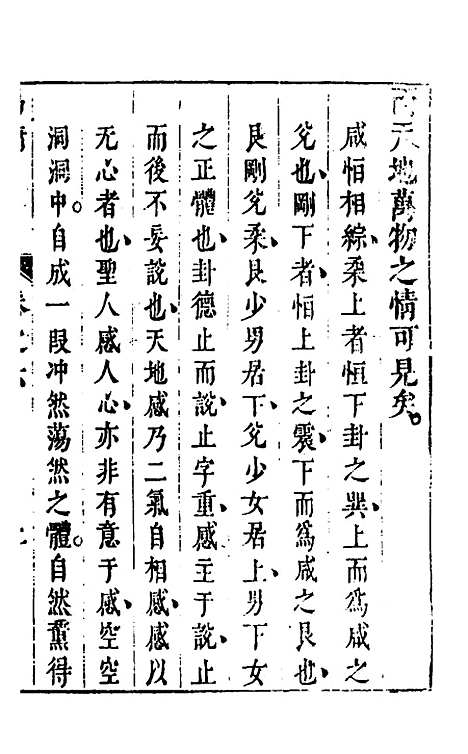 而天地萬物之情可見矣。
咸恒相綜、柔上者恒下卦之巽、上而爲咸之
兌也、剛下者、恒上卦之震、下而爲咸之艮也、
艮剛兌柔、艮少男居下、兌少女居上、男下女
之正體也、卦德止而說、止字重、感主于說、止
而後不妄說也、天地感乃二氣自相感、感以
无心者也、聖人感人心、亦非有意于感、空空
洞洞中。自成一段冲然蕩然之體。自然薰得
卷之六